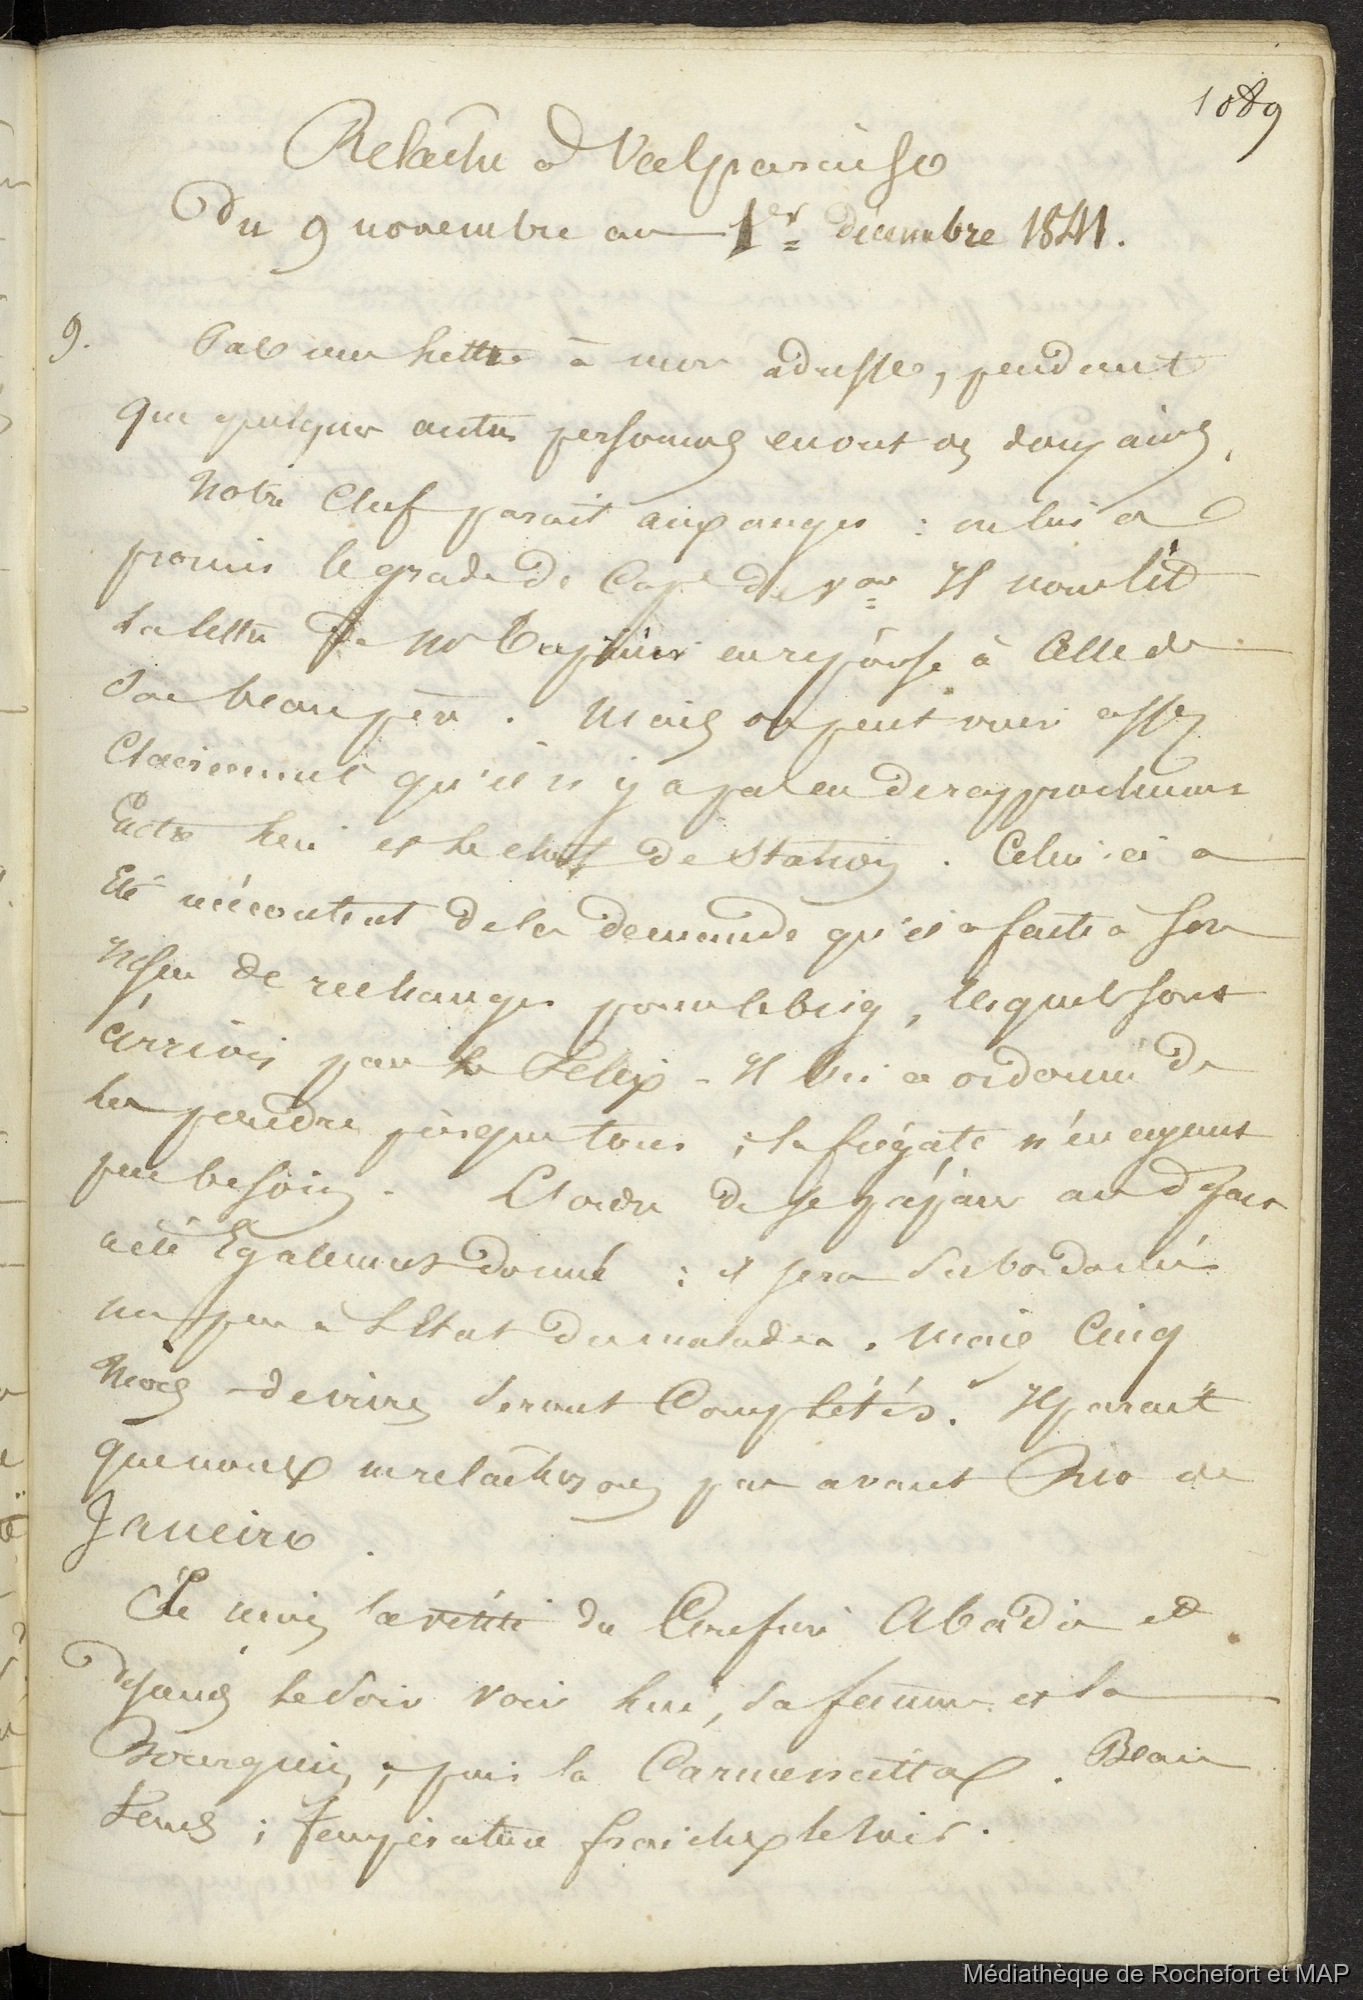 1089
Relâche à Valparaiso
Du 9 novembre au 1er décembre 1841.
9. Pas une lettre à mon adresse, pendant
que quelques autres personnes en ont des douzaines.
Notre Chef parait aux anges : on lui a
promis le grade de Cape de vau Il nous lit
la lettre de Mr en réponse à Celle de
son beau père. Mais on peut voir assez
Clairement qu'il n'y a pas eu de rapprochement
Entre lui et le chef de Station. Celui-ci a
Eté mécontent de la demande qu'il a faite à son
insu de rechanges pour le brig, lesquels sont
arrivés par le Felix - Il lui a ordonné de
les prendre presque tous ; la frégate n'en ayant
pas besoin. L'ordre de se préparer au départ
a été Egalement donné : il sera subordonné
un peu à l'Etat des malades. Mais Cinq
Mois de vivres seront Complétés. Il parait
que nous ne relâcherons pas avant Rio de
Janeiro.
Je reçois la visite du Confrère Abadie et
descends le soir voir lui, sa femme et la
Bourguin, puis la Carmencitta. Beau
tems ; Température fraiche le soir.
Médiathèque de Rochefort et MAP